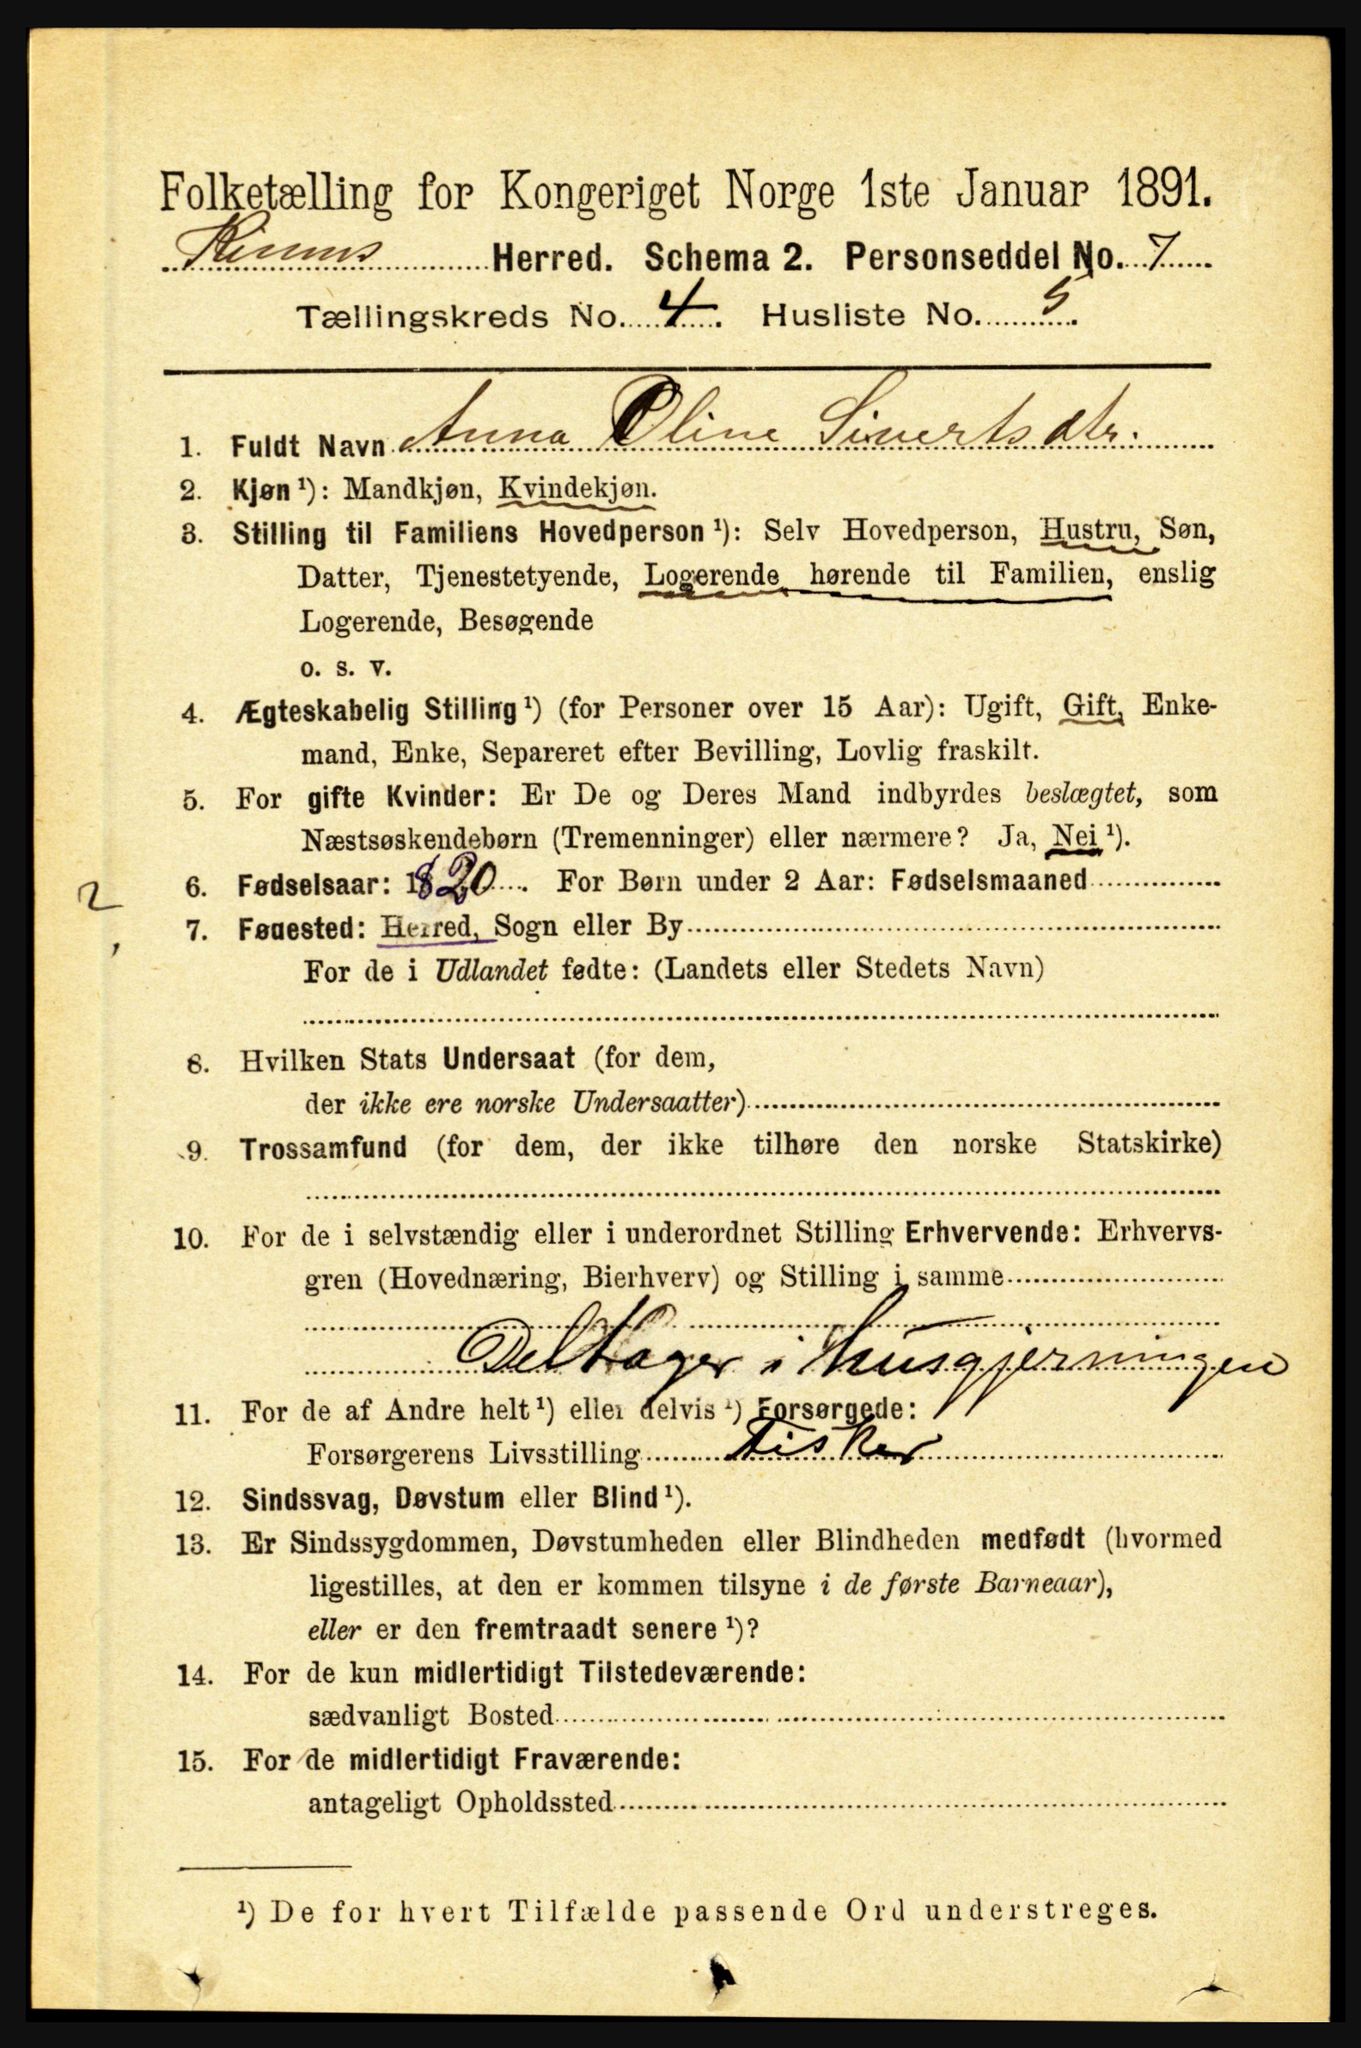 Folketælling for Kongeriget Norge 1ste Januar 1891.
Kinns Herred. Schema 2. Personseddel No. 7
Tællingskreds No. 4. Husliste No. 5.
1. Fuldt Navn Anna Oline Sivertsdtr.
2. Kjøn ¹): Mandkjøn, Kvindekjøn.
3. Stilling til Familiens Hovedperson ¹): Selv Hovedperson, Hustru, Søn,
Datter, Tjenestetyende, Logerende hørende til Familien, enslig
Logerende, Besøgende
o. s. v.
4. Ægteskabelig Stilling ¹) (for Personer over 15 Aar): Ugift, Gift, Enke-
mand, Enke, Separeret efter Bevilling, Lovlig fraskilt.
5. For gifte Kvinder: Er De og Deres Mand indbyrdes beslægtet, som
Næstsøskendebørn (Tremenninger) eller nærmere? Ja, Nei ¹).
6. Fødselsaar: 1820. For Børn under 2 Aar: Fødselsmaaned
2
7. Fødested: Herred, Sogn eller By
For de i Udlandet fødte: (Landets eller Stedets Navn)
8. Hvilken Stats Undersaat (for dem,
der ikke ere norske Undersaatter)
9. Trossamfund (for dem, der ikke tilhøre den norske Statskirke)
10. For de i selvstændig eller i underordnet Stilling Erhvervende: Erhvervs-
gren (Hovednæring, Bierhverv) og Stilling i samme
Deltager i husgjerningen
11. For de af Andre helt ¹) eller delvis ¹) Forsørgede:
Forsørgerens Livsstilling Fisker
12. Sindssvag, Døvstum eller Blind ¹).
13. Er Sindssygdommen, Døvstumheden eller Blindheden medfødt (hvormed
ligestilles, at den er kommen tilsyne i de første Barneaar),
eller er den fremtraadt senere ¹)?
14. For de kun midlertidigt Tilstedeværende:
sædvanligt Bosted
15. For de midlertidigt Fraværende:
antageligt Opholdssted
¹) De for hvert Tilfælde passende Ord understreges.